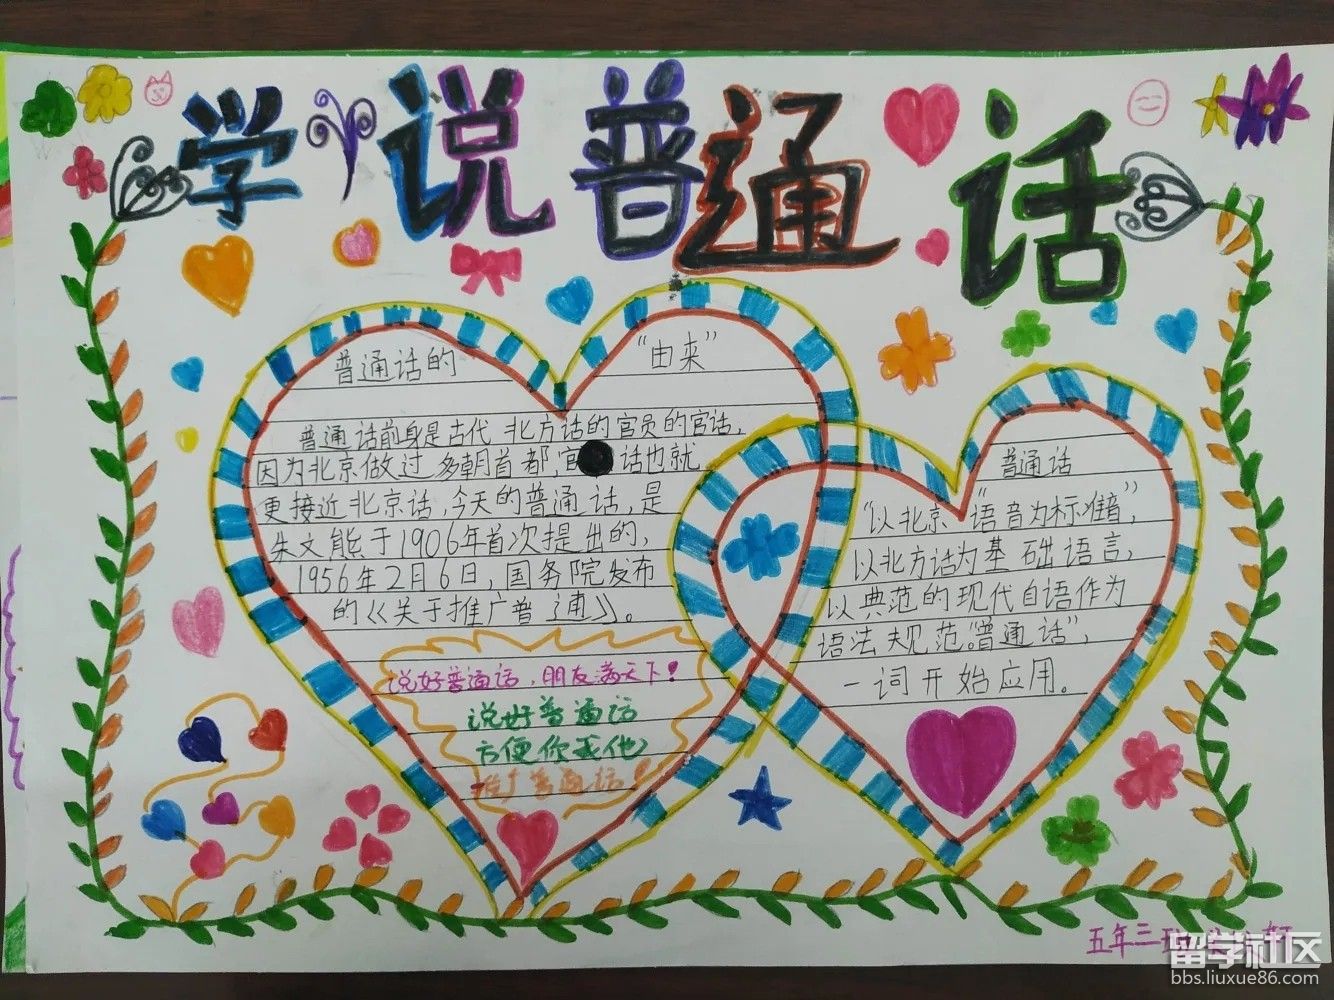 学说普通话
普通话的
“由来”
普通话前身是古代北方话的官员的官话，
因为北京做过多朝首都，官话也就
更接近北京话，今天的普通话，是
朱文熊于1906年首次提出的，
1956年2月6日，国务院发布
的《关于推广普通》。
说好普通话，朋友满天下！
说好普通话
方便你我他
推广普通话！
普通话
“以北京“语音为标准音”，
以北方话为基础语言，
以典范的现代白语作为
语法规范。“普通话”，
一词开始应用。
五年三班
留学社区
bbs.liuxue86.com